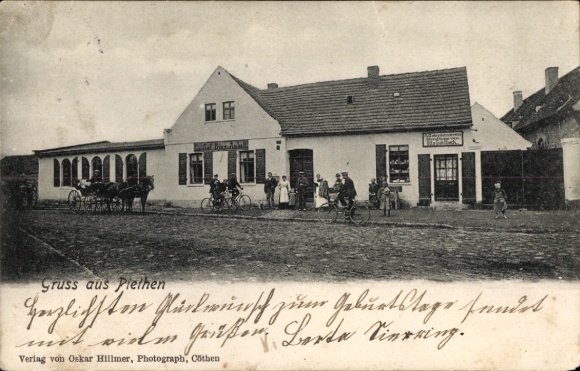 Gruss aus Piethen
Herzlichsten Glückwunsch zum Geburtstage sendet
mit vielen Grüßen Berta Sierring.
Verlag von Oskar Hillmer, Photograph, Cöthen